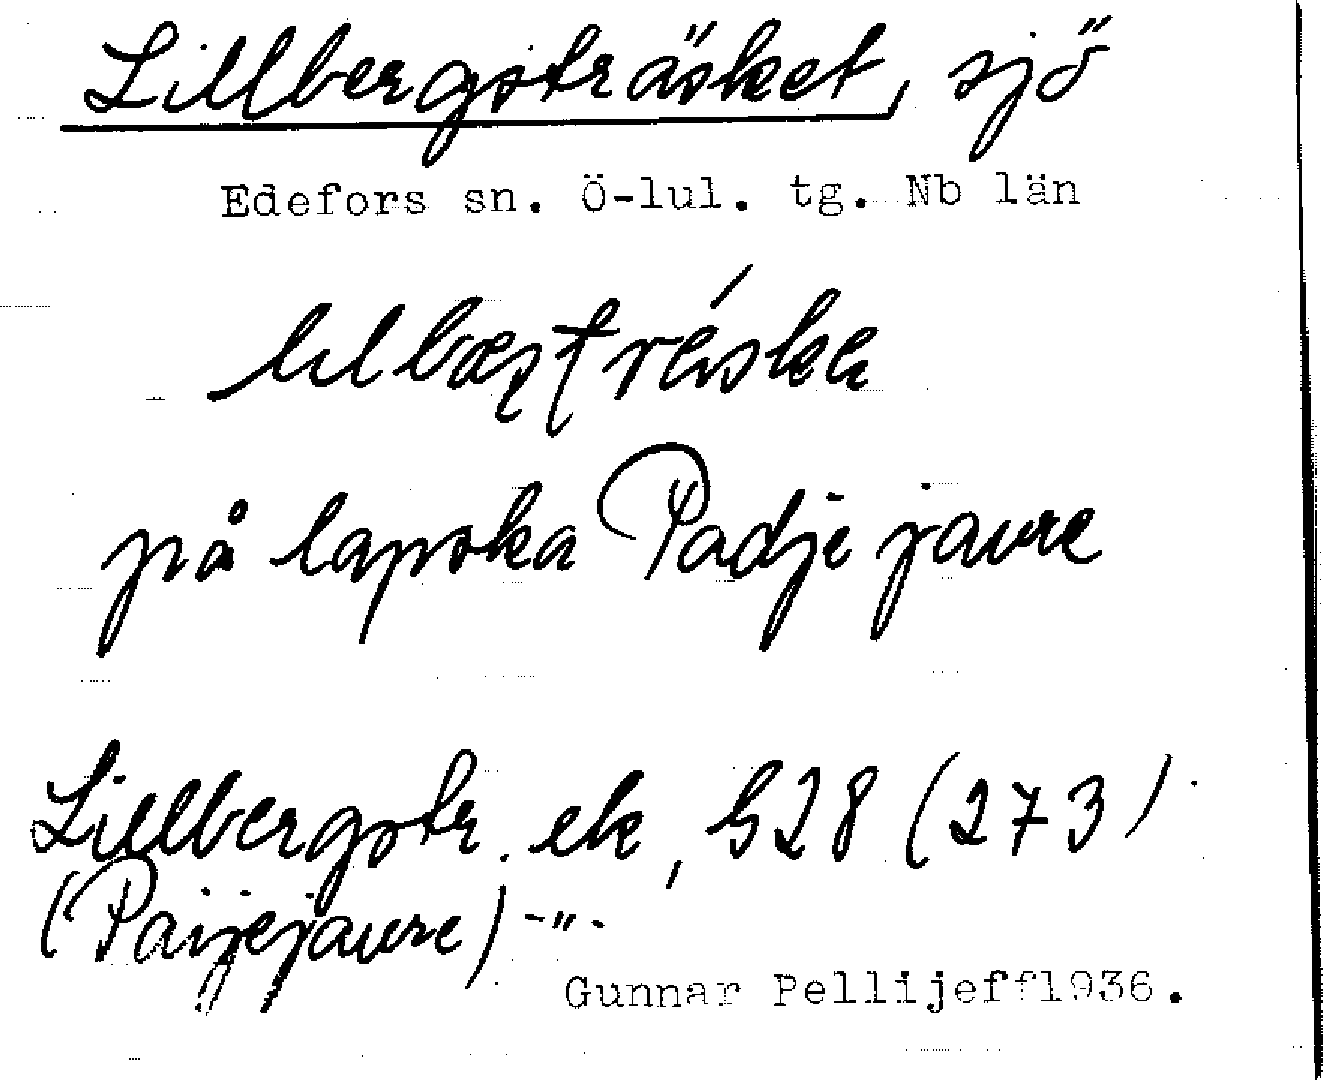 Lillbergsträsket, sjö
Edefors sn. Ö-lul. tg. Nb län
på lapska Padje jaure
Lillbergstr. ek, S28 (273)
(Paijejaure) -"-
Gunnar Pellijeff1936.